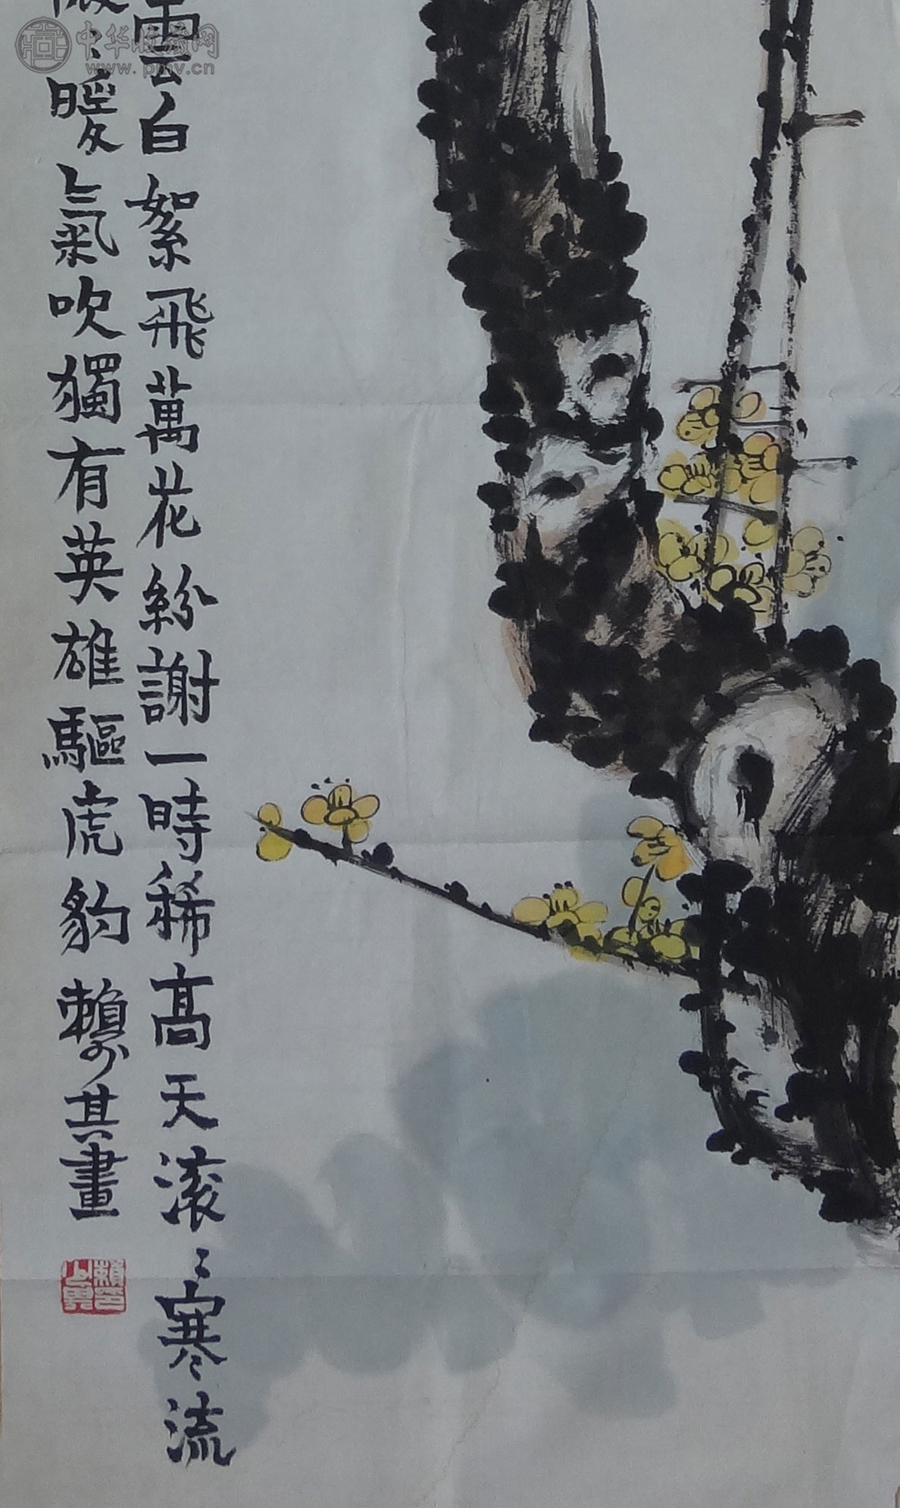 雲白絮飛萬花紛謝一時稀高天滚〻寒流
微〻暖氣吹獨有英雄驅虎豹賴少其畫
賴少其印
中华收藏网
www.pmv.cn